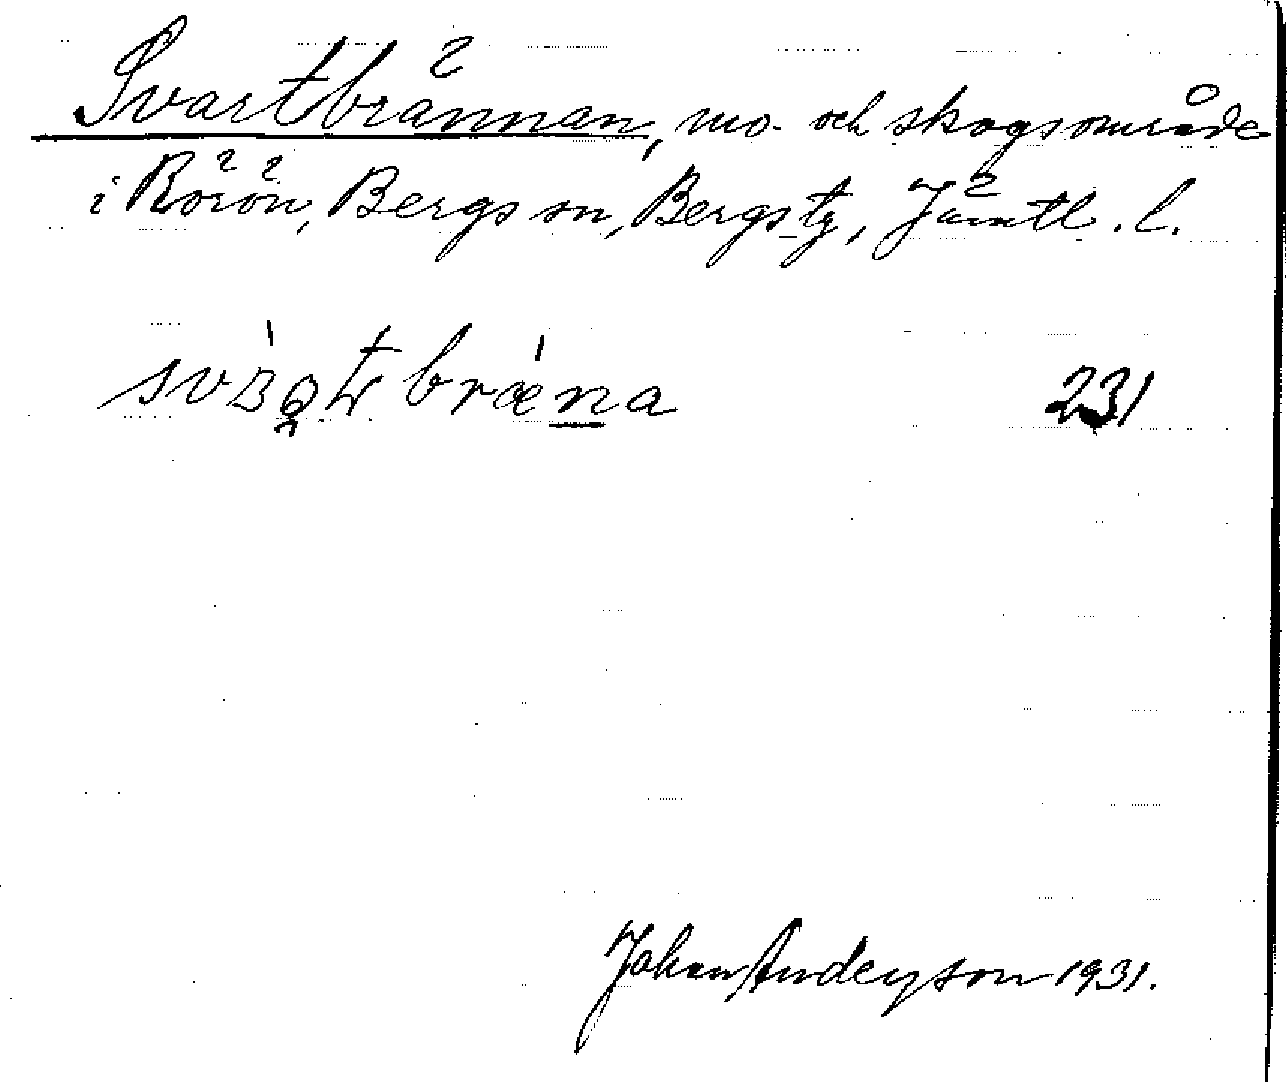 Svartbrännan, mo- och skogsområde
i Rörön, Bergs sn, Bergs tg, Jämtl. l.
231
Johan Anderson 1931.